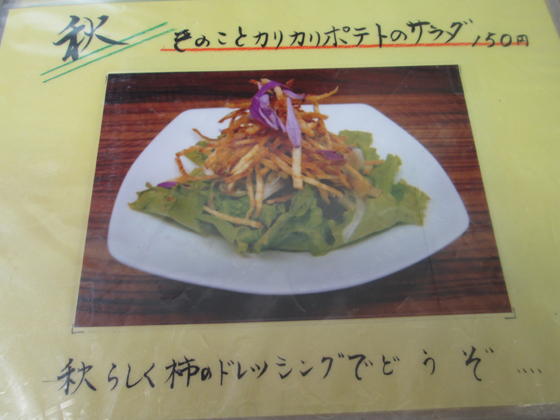 秋 きのことカリカリポテトのサラダ 150円
秋らしく柿のドレッシングでどうぞ ....